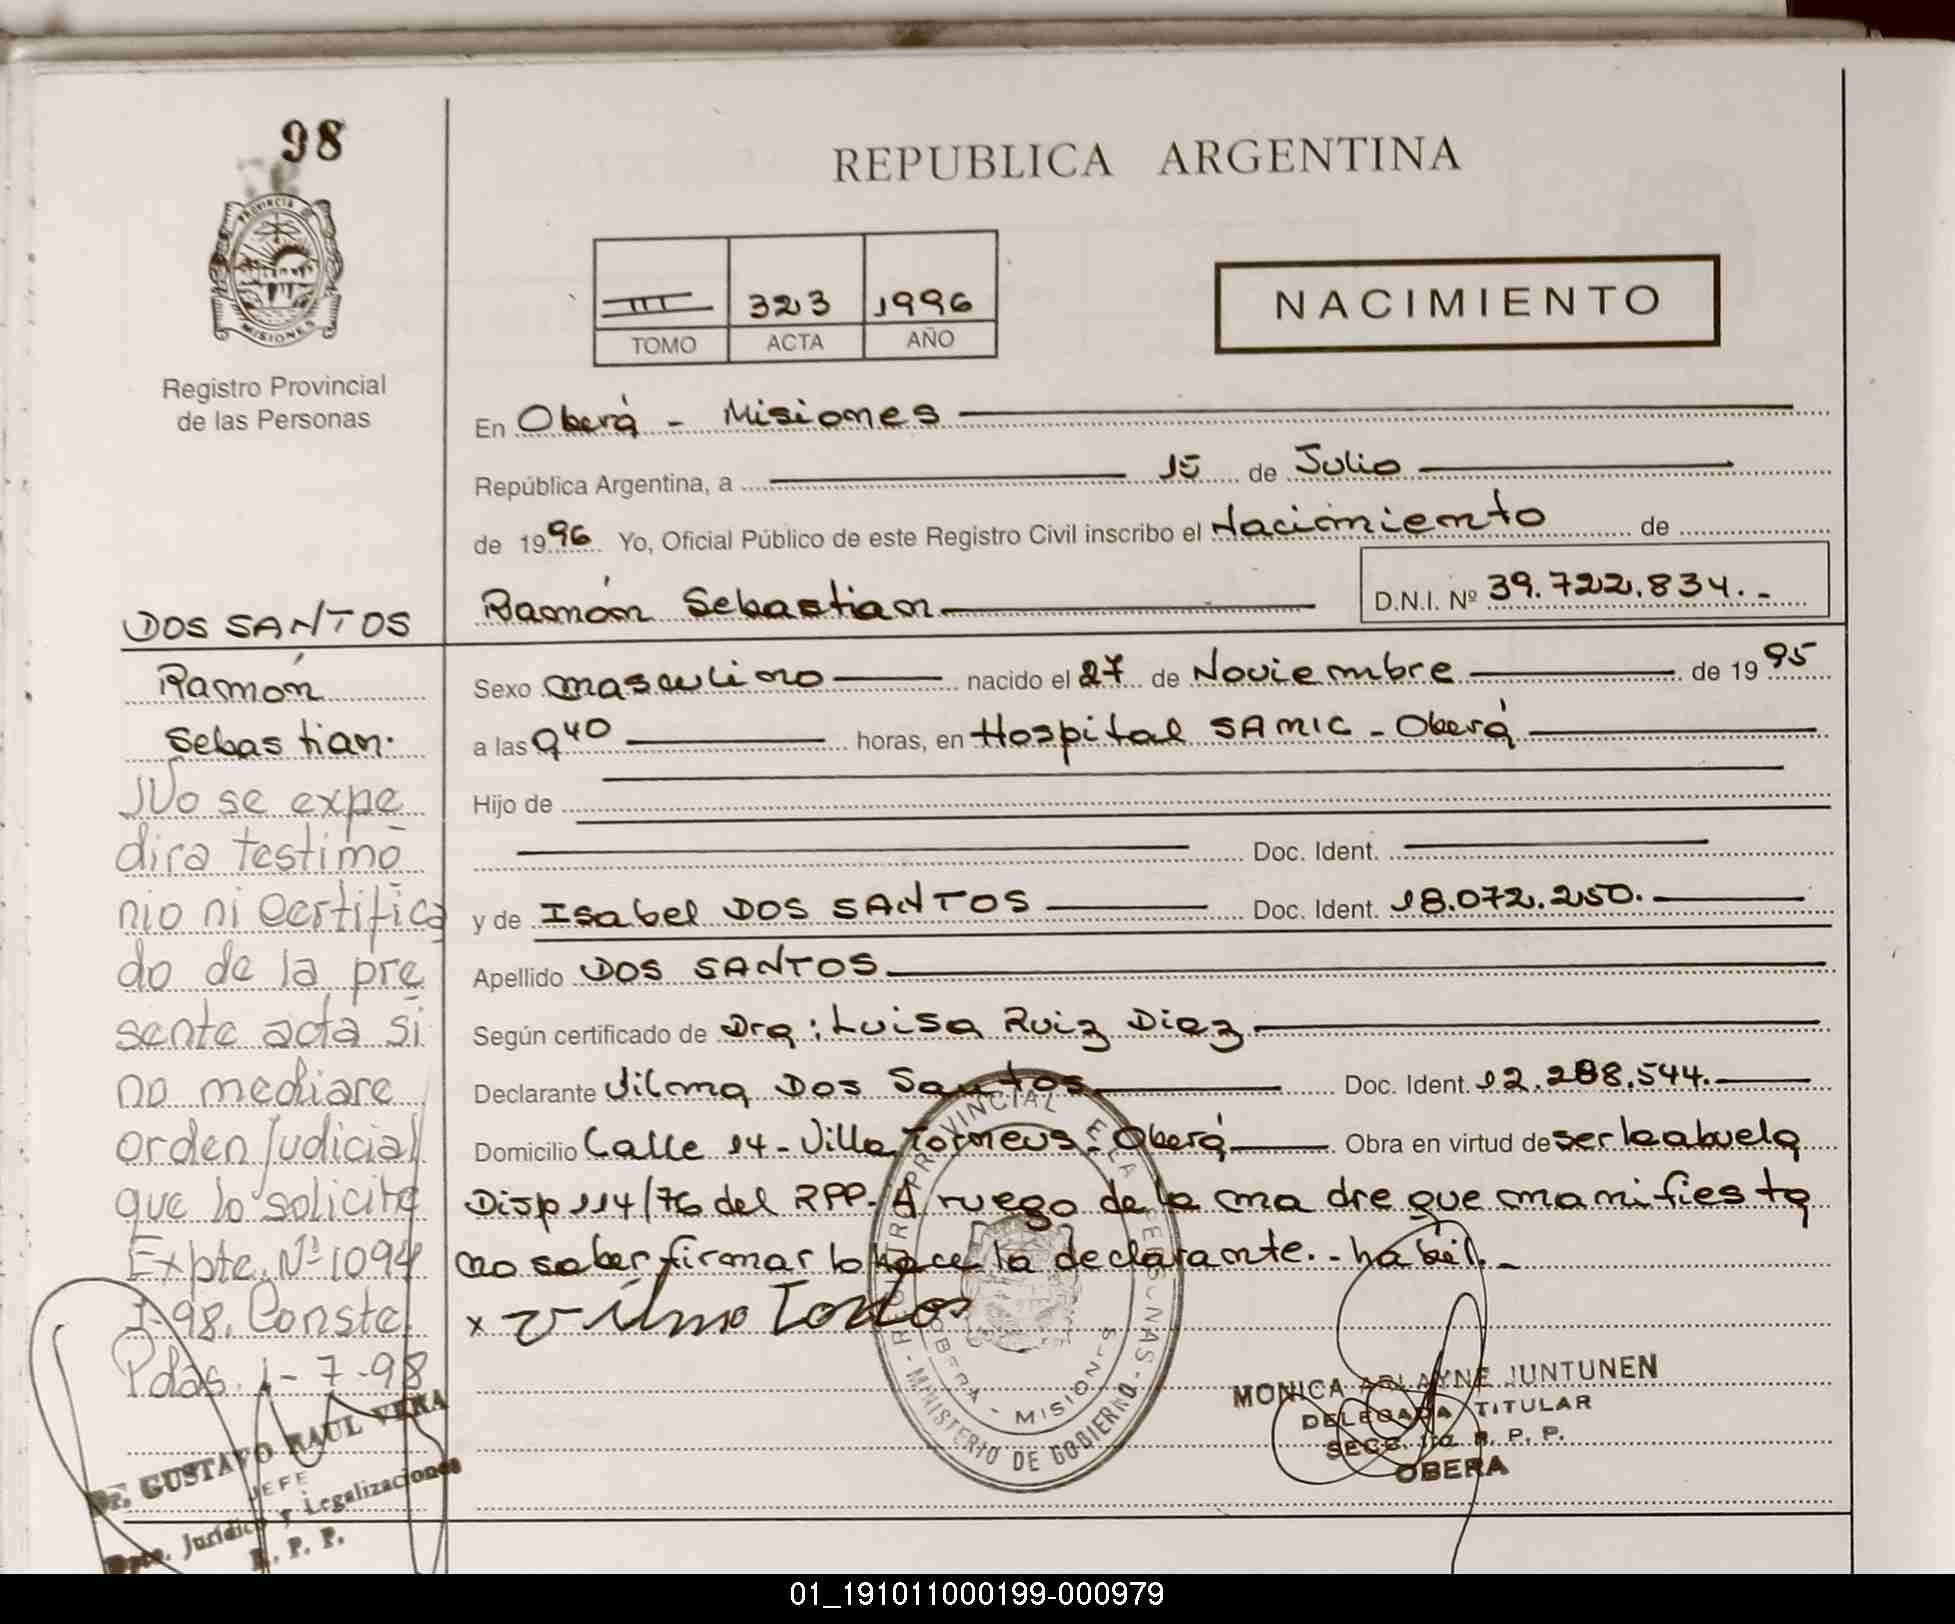 98
REPUBLICA ARGENTINA
III 323 1996
TOMO ACTA AÑO
NACIMIENTO
PROVINCIA DE
MISIONES
Registro Provincial
de las Personas
En Oberá - Misiones
República Argentina, a 15 de Julio
de 1996 Yo, Oficial Público de este Registro Civil inscribo el Nacimiento de
Ramón Sebastian D.N.I. Nº 39.722.834.-
Sexo masculino nacido el 27 de Noviembre de 1995
a las 9 40 horas, en Hospital SAMIC - Oberá
Hijo de
Doc. Ident.
y de Isabel DOS SANTOS Doc. Ident. 18.072.250.
Apellido DOS SANTOS
Según certificado de Dra: Luisa Ruiz Diaz
Declarante Vilma Dos Santos Doc. Ident. 12.288.544.
Domicilio Calle 14 - Villa Oberá Obra en virtud de ser la abuela
Disp 114/76 del RPP. A ruego de la madre que manifiesta
no saber firmar lo hace la declarante.- habil.-
x
DOS SANTOS
Ramón
Sebastian.
No se expe
dira testimo
nio ni certifica
do de la pre
sente acta si
no mediare
orden Judicial
que lo solicite
Expte. Nº 1094
I-98. Conste.
Pdas. 1-7-98
Dr. GUSTAVO RAUL VERA
JEFE
Dpto. Jurídico y Legalizaciones
R. P. P.
MINISTERIO DE GOBIERNO
OBERA - MISIONES
MONICA ARLAYNE JUNTUNEN
DELEGADA TITULAR
SECC. R. P. P.
OBERA
01_191011000199-000979